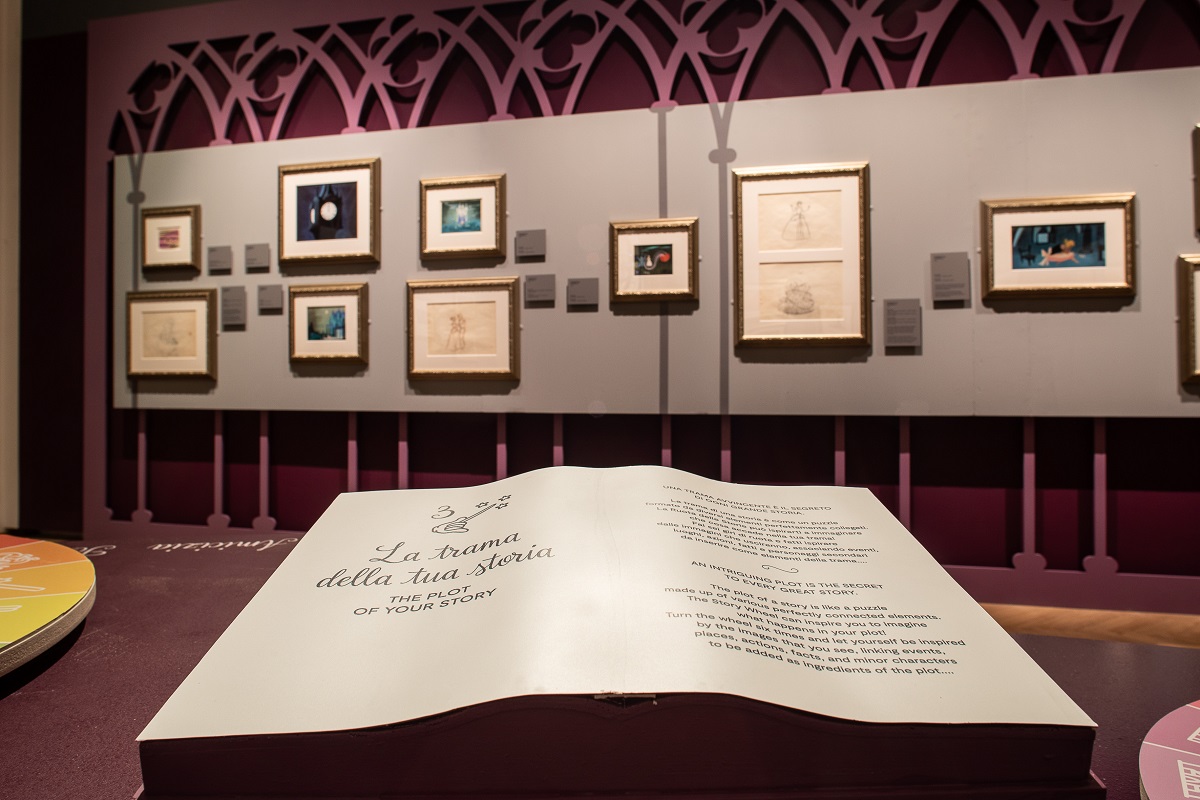 3
La trama
della tua storia
THE PLOT
OF YOUR STORY
UNA TRAMA AVVINCENTE È IL SEGRETO
DI OGNI GRANDE STORIA.
La trama di una storia è come un puzzle
formato da diversi elementi perfettamente collegati.
La Ruota della Storia può ispirarti a immaginare
che cosa succede nella tua trama!
Fai girare sei volte la ruota e fatti ispirare
dalle immagini che usciranno, associando eventi,
luoghi, azioni, fatti e personaggi secondari
da inserire come elementi della trama....
AN INTRIGUING PLOT IS THE SECRET
TO EVERY GREAT STORY.
The plot of a story is like a puzzle
made up of various perfectly connected elements.
The Story Wheel can inspire you to imagine
what happens in your plot!
Turn the wheel six times and let yourself be inspired
by the images that you see, linking events,
places, actions, facts, and minor characters
to be added as ingredients of the plot....
Amicizia